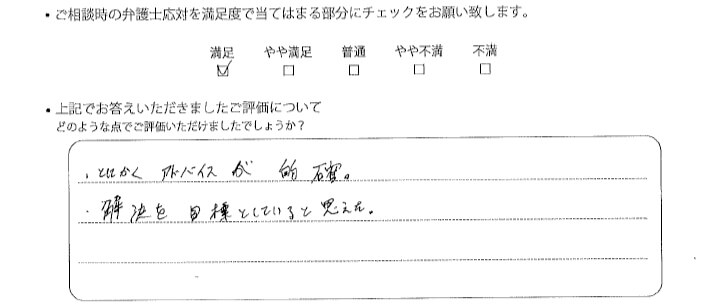 ・ご相談時の弁護士応対を満足度で当てはまる部分にチェックをお願い致します。
満足 やや満足 普通 やや不満 不満
☑ □ □ □ □
・上記でお答えいただきましたご評価について
どのような点でご評価いただけましたでしょうか?
・とにかく アドバイス が 的確。
・解決を目標としていると思えた。